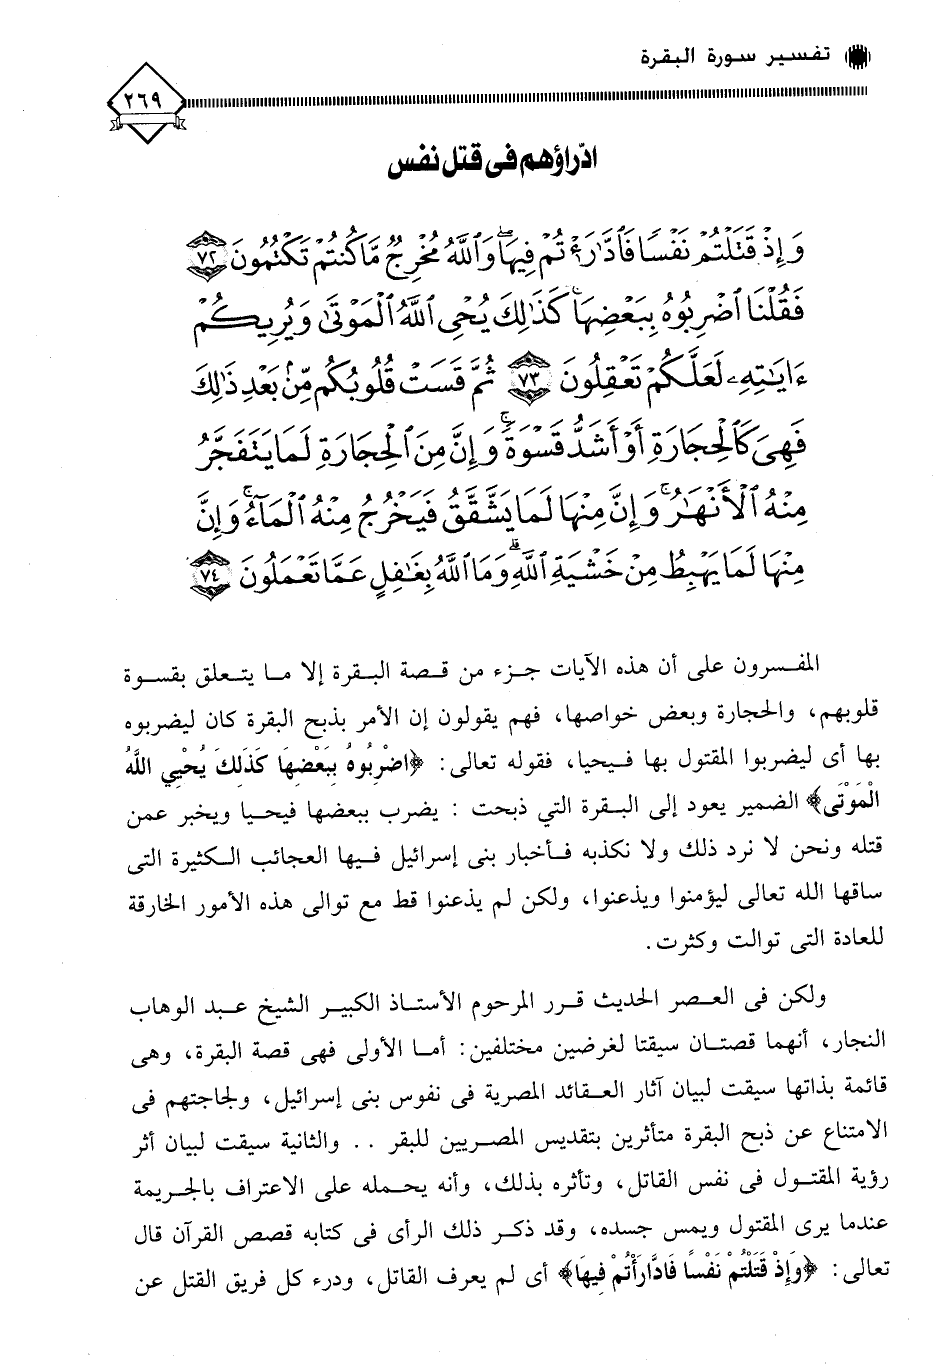 تفسير سورة البقرة
٢٦٩
ادّراؤهم فى قتل نفس
وَإِذْ قَتَلْتُمْ نَفْسًا فَادَّٰرَْٰٔتُمْ فِيهَا ۖ وَٱللَّهُ مُخْرِجٌ مَّا كُنتُمْ تَكْتُمُونَ ٧٢
فَقُلْنَا ٱضْرِبُوهُ بِبَعْضِهَا ۚ كَذَٰلِكَ يُحْىِ ٱللَّهُ ٱلْمَوْتَىٰ وَيُرِيكُمْ
ءَايَٰتِهِۦ لَعَلَّكُمْ تَعْقِلُونَ ٧٣ ثُمَّ قَسَتْ قُلُوبُكُم مِّنۢ بَعْدِ ذَٰلِكَ
فَهِىَ كَٱلْحِجَارَةِ أَوْ أَشَدُّ قَسْوَةً ۚ وَإِنَّ مِنَ ٱلْحِجَارَةِ لَمَا يَتَفَجَّرُ
مِنْهُ ٱلْأَنْهَٰرُ ۚ وَإِنَّ مِنْهَا لَمَا يَشَّقَّقُ فَيَخْرُجُ مِنْهُ ٱلْمَآءُ ۚ وَإِنَّ
مِنْهَا لَمَا يَهْبِطُ مِنْ خَشْيَةِ ٱللَّهِ ۗ وَمَا ٱللَّهُ بِغَٰفِلٍ عَمَّا تَعْمَلُونَ ٧٤
المفسرون على أن هذه الآيات جزء من قصة البقرة إلا ما يتعلق بقسوة
قلوبهم، والحجارة وبعض خواصها، فهم يقولون إن الأمر بذبح البقرة كان ليضربوه
بها أى ليضربوا المقتول بها فيحيا، فقوله تعالى: ﴿اضْرِبُوهُ بِبَعْضِهَا كَذَلِكَ يُحْيِي اللَّهُ
الْمَوْتَى﴾ الضمير يعود إلى البقرة التي ذبحت : يضرب ببعضها فيحيا ويخبر عمن
قتله ونحن لا نرد ذلك ولا نكذبه فأخبار بنى إسرائيل فيها العجائب الكثيرة التى
ساقها الله تعالى ليؤمنوا ويذعنوا، ولكن لم يذعنوا قط مع توالى هذه الأمور الخارقة
للعادة التى توالت وكثرت.
ولكن فى العصر الحديث قرر المرحوم الأستاذ الكبير الشيخ عبد الوهاب
النجار، أنهما قصتان سيقتا لغرضين مختلفين: أما الأولى فهى قصة البقرة، وهى
قائمة بذاتها سيقت لبيان آثار العقائد المصرية فى نفوس بنى إسرائيل، ولجاجتهم فى
الامتناع عن ذبح البقرة متأثرين بتقديس المصريين للبقر .. والثانية سيقت لبيان أثر
رؤية المقتول فى نفس القاتل، وتأثره بذلك، وأنه يحمله على الاعتراف بالجريمة
عندما يرى المقتول ويمس جسده، وقد ذكر ذلك الرأى فى كتابه قصص القرآن قال
تعالى: ﴿وَإِذْ قَتَلْتُمْ نَفْسًا فَادَّارَأْتُمْ فِيهَا﴾ أى لم يعرف القاتل، ودرء كل فريق القتل عن